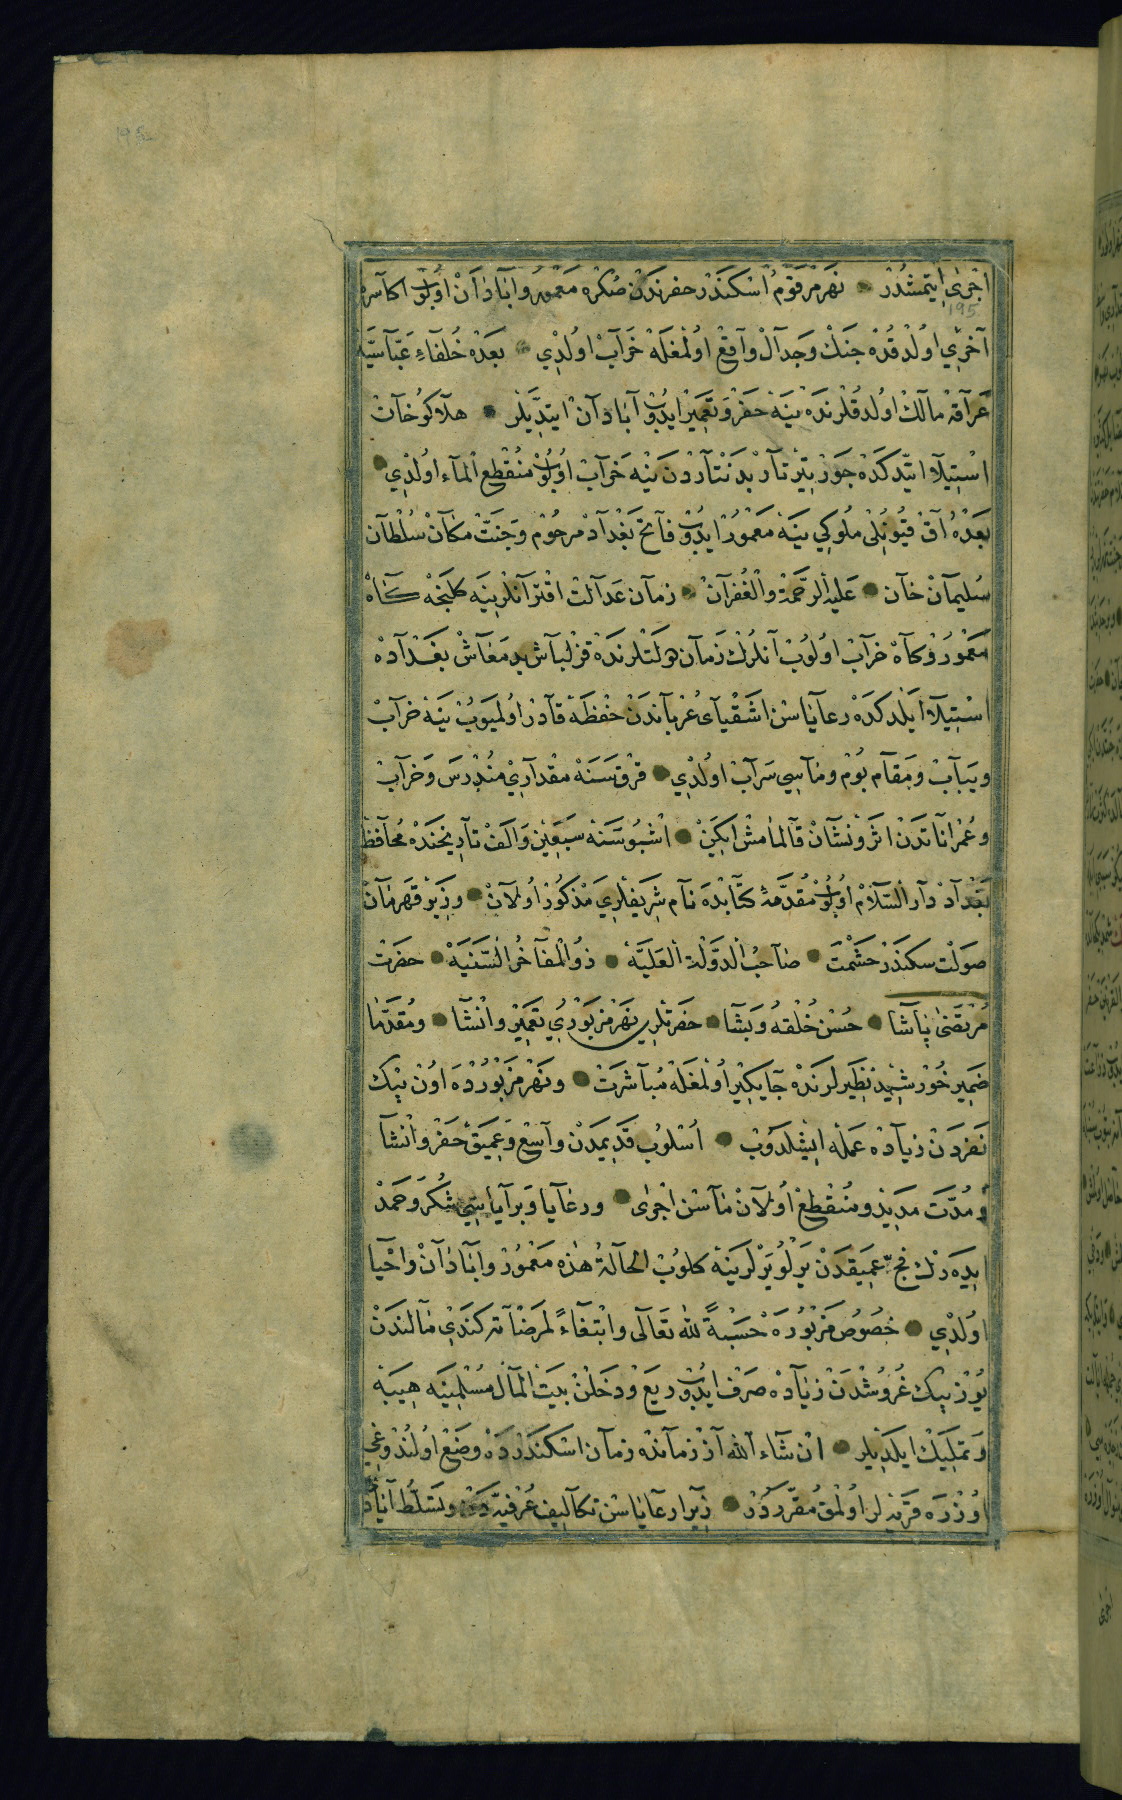 اجرى ايتمشدر نهر مرقوم اسكندر حفرندن صكره معمور و ابادان اولوب اكاسره
195
آخرى اولدقده جنك و جدال واقع اولمغله خراب اولدى بعده خلفاء عباسيه
عراقه مالك اولدقلرنده ينه حفر و تعمير ايدوب آبادان ايتديلر هلاكو خان
استيلا ايتدكده جور بيز تار بدنتاردن ينه خراب اولوب منقطع الماء اولدى
بعده اق قيونلى ملوكى ينه معمور ايدوب فاتح بغداد مرحوم و جنت مكان سلطان
سليمان خان عليه الرحمة والغفران زمان عدالت اقترانلرينه كلنجه كاه
معمور و كاه خراب اولوب انلرك زمان دولتلرنده قزلباش بدمعاش بغداده
استيلا ايلدكده رعاياسن اشقياى عرباندن حفظه قادر اولميوب ينه خراب
و يباب و مقام بوم و ماسى سراب اولدى قرق سنه مقدارى مندرس و خراب
و عمراناتدن اثر و نشان قالمامش ايكن اشبو سنه سبعين و الف تاريخنده محافظ
بغداد دار السلام اولوب مقدمة كتابده نام شريفلرى مذكور اولان وزير قهرمان
صولت سكندر حشمت صاحب الدولة العلية ذو المفاخر السنيه حضرت
مرتضى پاشا حسن خلقه و بشا حضرتلرى نهر مزبورى تعمير و انشا و مقدما
ضمير خورشيد نظيرلرنده جايكير اولمغله مباشرت و نهر مزبورده اون بيك
نفردن زياده عمله ايشلدوب اسلوب قديمدن واسع و عميق حفر و انشا
و مدت مديد و منقطع اولان ماسن اجرى و رعايا و براياسى شكر و حمد
ايده رك فج عميقدن يرلو يرلرينه كلوب الحالة هذه معمور و ابادان و احيا
اولدى خصوص مزبوره حسبة لله تعالى و ابتغاء لمرضاته كندى مالندن
يوز بيك غروشدن زياده صرف ايدوب ريع و دخلن بيت المال مسلمينه هيبه
و تمليك ايلديلر ان شاء الله از زمانده زمان اسكندرده وضع اولندوغى
اوزره قريه لر اولمق مقرردر زيرا رعاياسن تكاليف عرفيه دن و تسلط